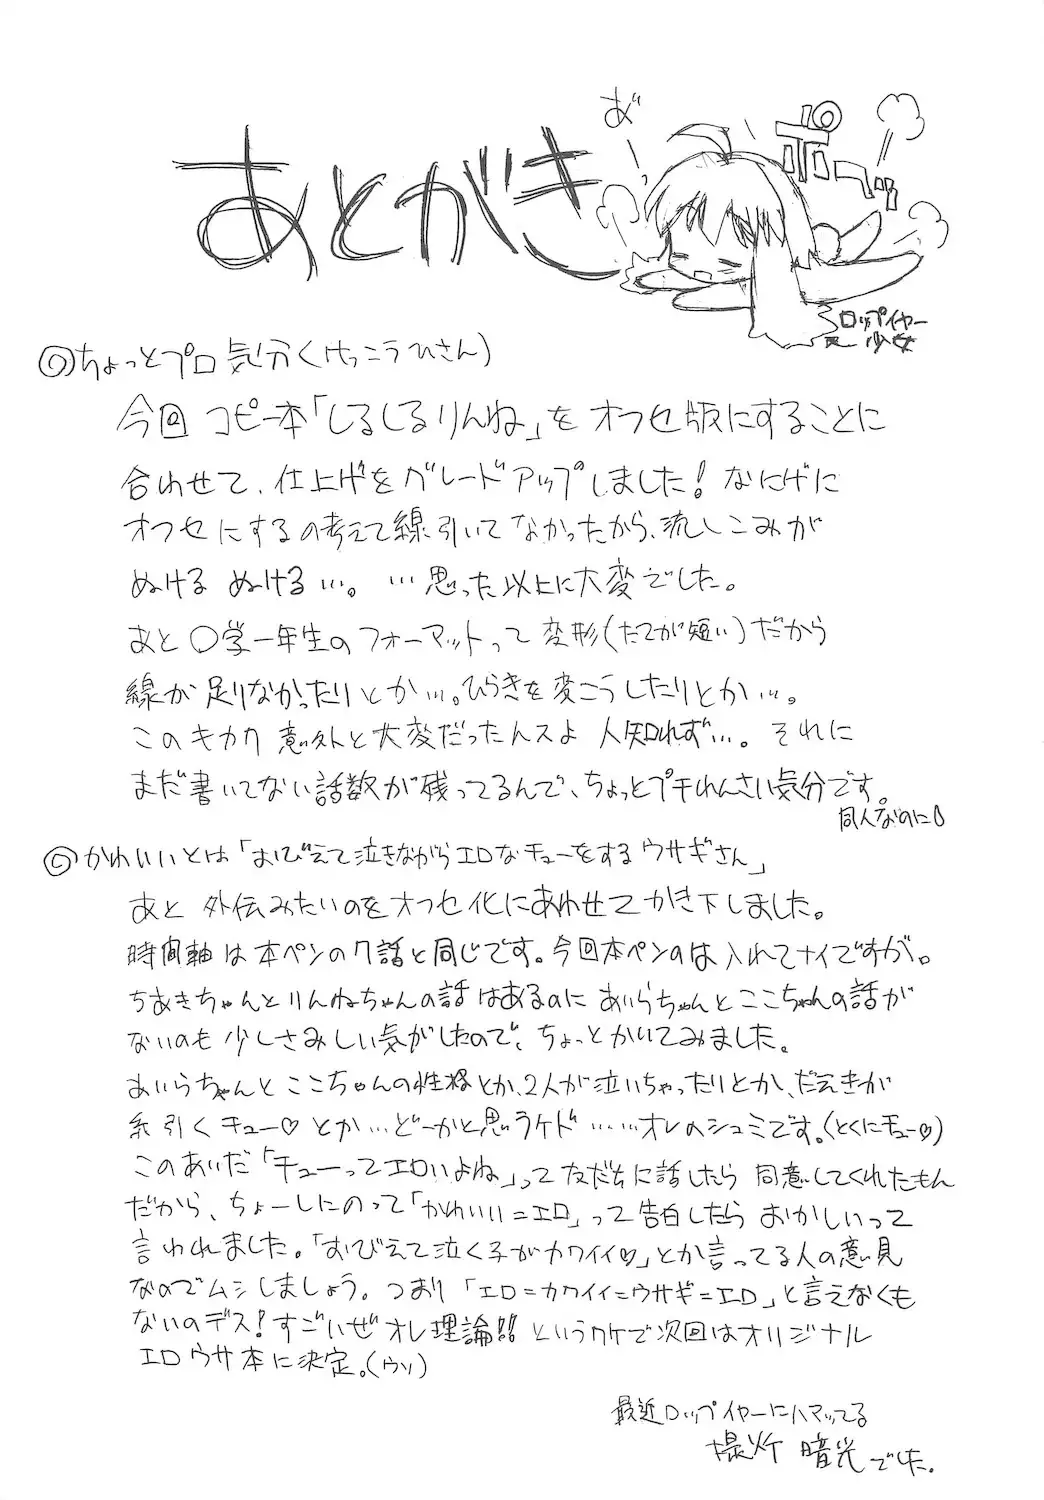 あとがき
あ゛
ポテッ
ロップイヤー
少女
◎ちょっとプロ気分(けっこうひさん)
今回 コピー本「しるしるりんね」を オフセ版にすることに
合わせて、仕上げをグレードアップしました! なにげに
オフセにするの考えて線引いて なかったから、流しこみが
ぬける ぬける…。 …思った以上に大変でした。
あと 〇学一年生の フォーマットって 変形(たてが短い)だから
線が足りなかったりとか…。ひらきを変こうしたりとか…。
このキカク 意外と大変だったんスよ 人知れず…。 それに
まだ書いてない話数が残ってるんで、ちょっとプチれんさい気分です。
同人なのに
◎かわいいとは「おびえて泣きながらエロなチューをするウサギさん」
あと 外伝みたいのをオフセ化にあわせてかき下しました。
時間軸は本ペンの7話と同じです。今回本ペンのは入れてナイですが。
ちあきちゃんとりんねちゃんの話はあるのに あいらちゃんとここちゃんの話が
ないのも少しさみしい気がしたので、ちょっとかいてみました。
あいらちゃんとここちゃんの性格とか、2人が泣いちゃったりとか、だえきが
糸引くチュー♡とか…どーかと思うケド……オレのシュミです。(とくにチュー♡)
このあいだ「チューってエロいよね」って友だちに話したら 同意してくれたもん
だから、ちょーしにのって「かわいい=エロ」って告白したら おかしいって
言われました。「おびえて泣く子がカワイイ♡」とか言ってる人の意見
なのでムシしましょう。つまり「エロ=カワイイ=ウサギ=エロ」と言えなくも
ないのデス! すごいぜオレ理論!! というワケで次回はオリジナル
エロウサ本に決定。(ウソ)
最近ロップイヤーにハマッてる
暗光でした。